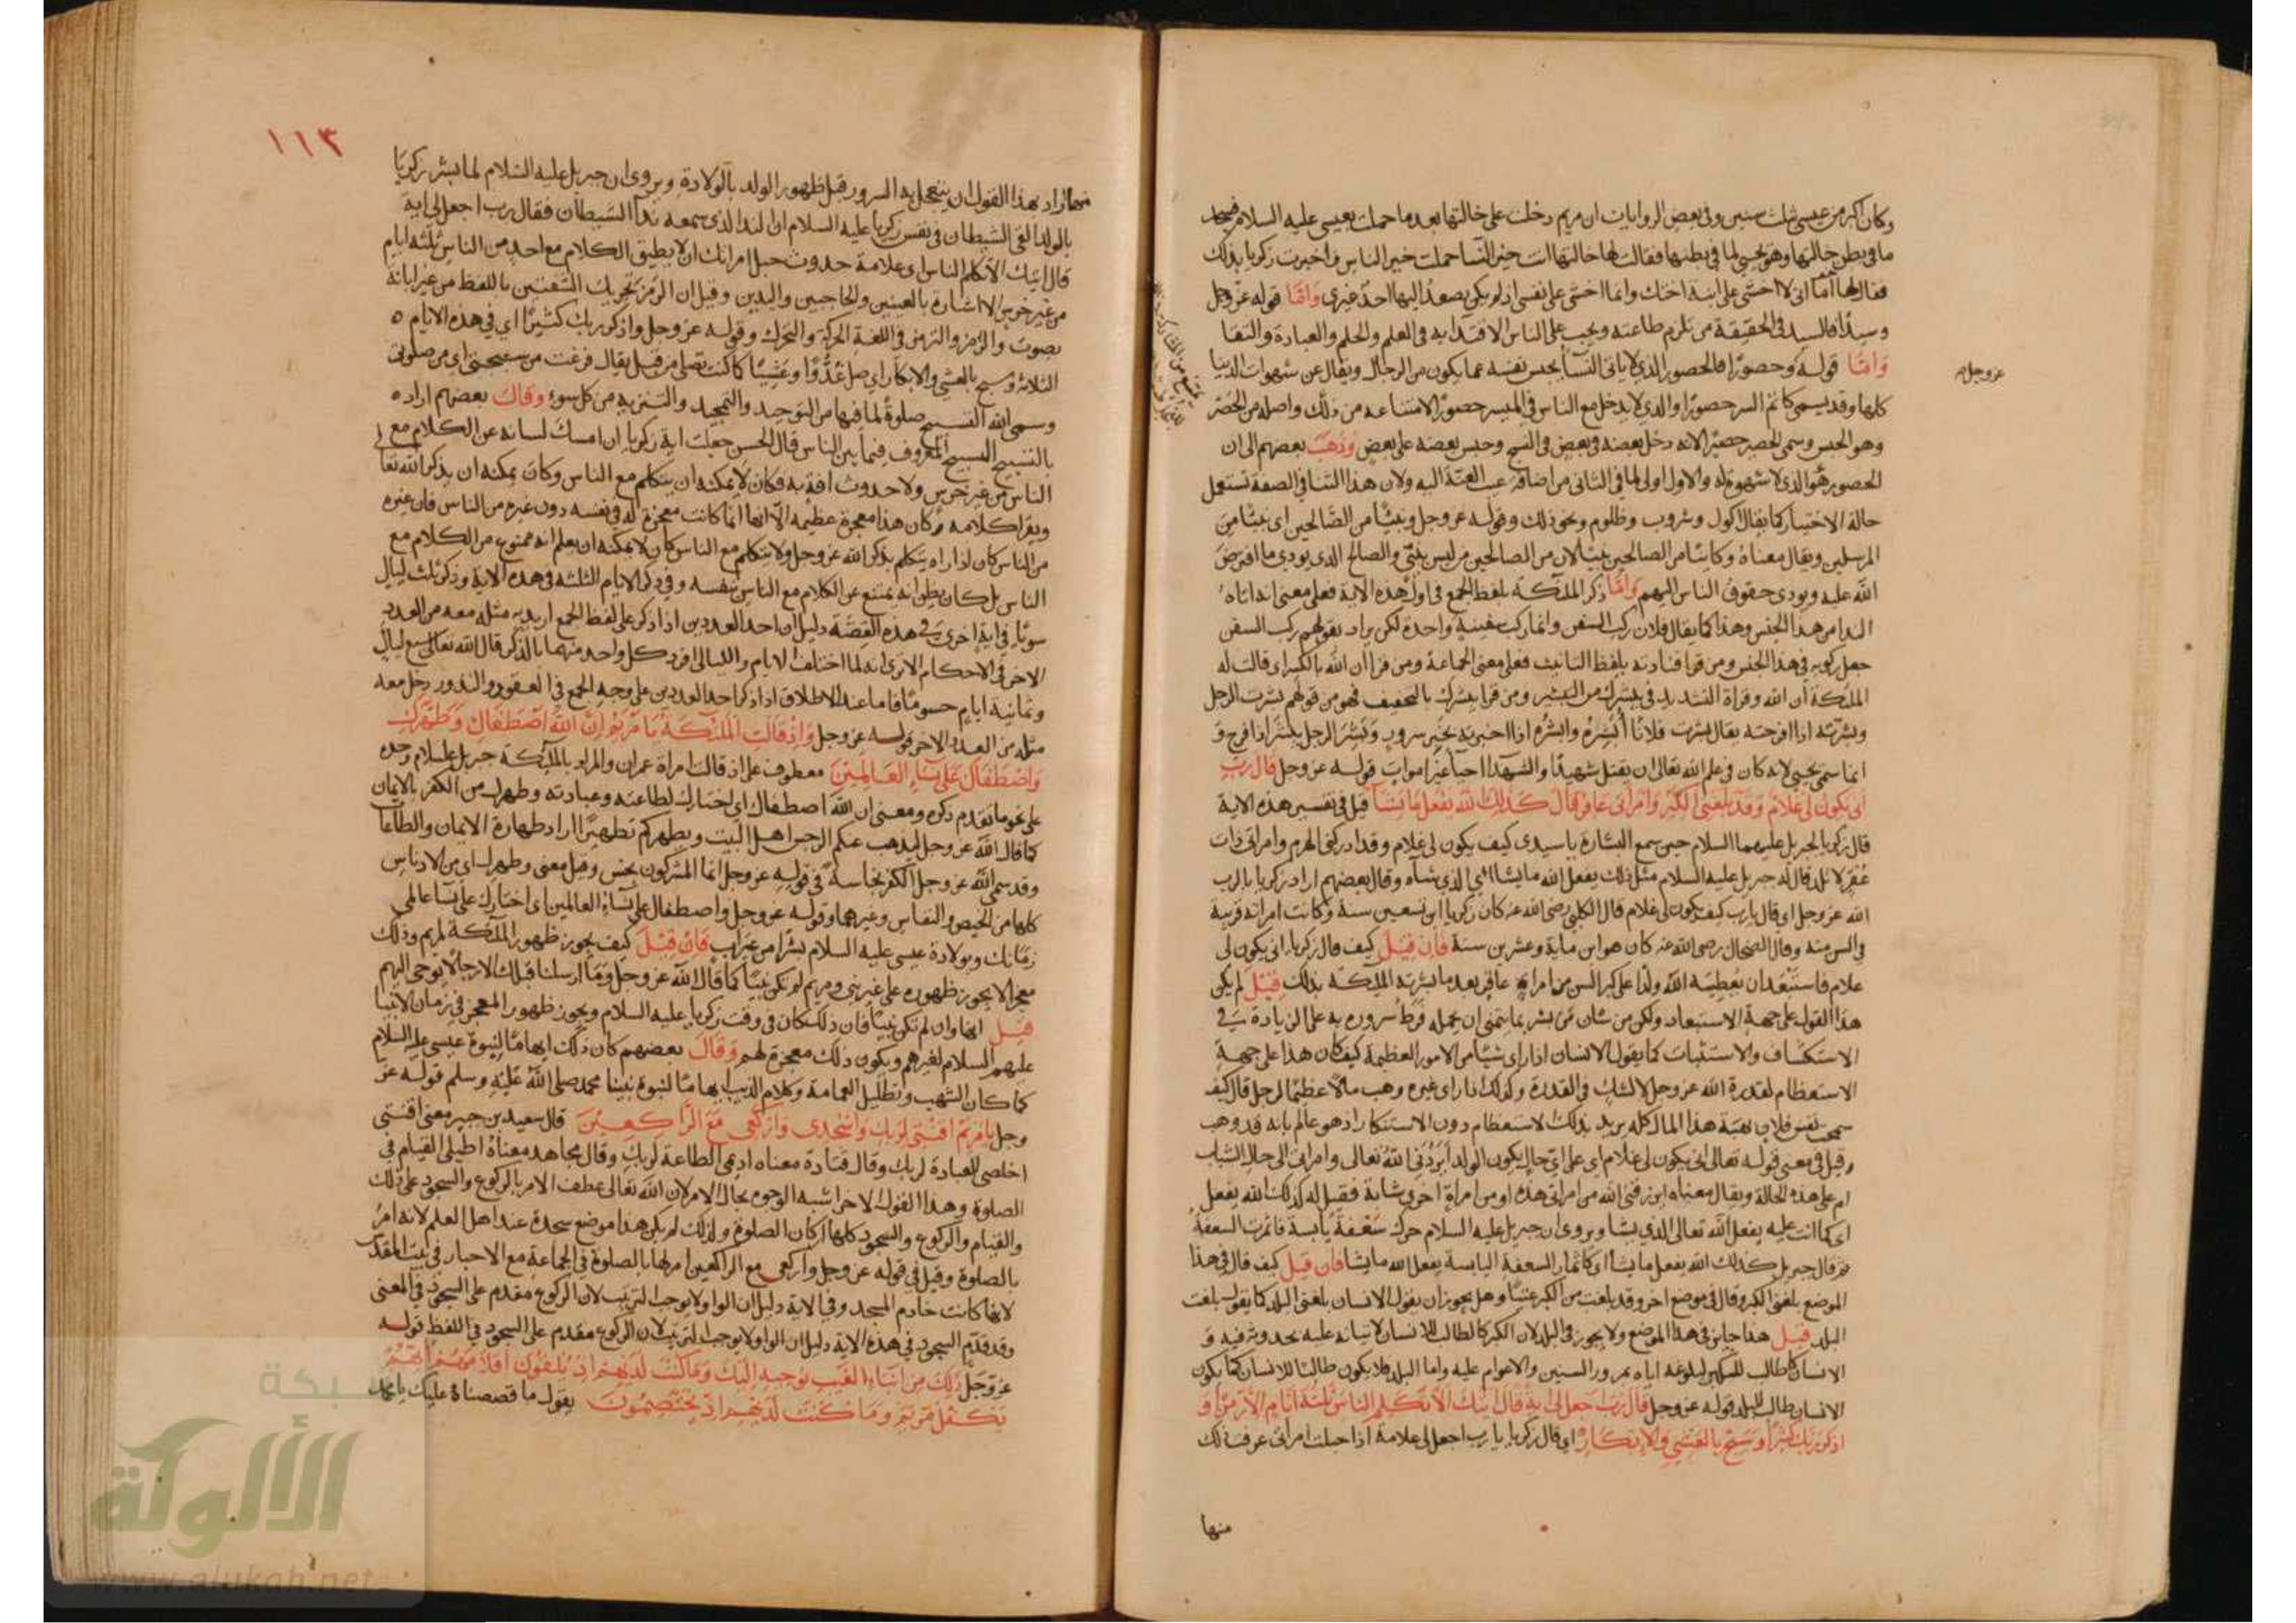 وكان اكبر من عيسى بثلث سنين وفي بعض الروايات ان مريم دخلت على خالتها بعد ما حملت بعيسى عليه السلام فسجد
ما في بطن خالتها وهو يحيى لما في بطنها فقالت لها خالتها انت خير النسا حملت خير الناس فاخبرت زكريا بذلك
فقال لها اما اني لا اخشى على ابنة اختك وانما اخشى على نفسي اذ لم يكن يصعد اليها احد غيري واما قوله عز وجل
وسيدا فالسيد في الحقيقة من تلزم طاعته ويجب على الناس الاقتدا به في العلم والحلم والعبادة والتقا
واما قوله وحصورا فالحصور الذي لا ياتي النسا يحبس نفسه عما يكون من الرجال ويقال عن شهوات الدنيا
عز وجل
كلها وقد يسمى كاتم السر حصورا والذي لا يدخل مع الناس في الميسر حصورا لامتناعه من ذلك واصله من الحصر
وهو الحبس وسمي الحصير حصيرا لانه دخل بعضه في بعض في النسج وحبس بعضه على بعض وذهب بعضهم الى ان
الحصور هو الذي لا شهوة له والاول اولى لما في الثاني من اضافة عيب العنة اليه ولان هذا البنا في الصفة تستعمل
حالة الاختيار كما يقال اكول وشروب وظلوم ونحو ذلك وقوله عز وجل ونبيا من الصالحين اي نبيا من
المرسلين ويقال معناه وكاينا من الصالحين نبيا لان من الصالحين من ليس بنبي والصالح الذي يودي ما افترض
الله عليه ويودي حقوق الناس اليهم واما ذكر الملائكة بلفظ الجمع في اول هذه الاية فعلى معنى انه اتاه
الندا من هذا الجنس وهذا كما يقال فلان ركب السفن وانما ركب سفينة واحدة لكن يراد بقولهم ركب السفن
جعل ركوبه في هذا الجنس ومن قرا فنادته بلفظ التانيث فعلى معنى الجماعة ومن قرا ان الله بالكسر اي قالت له
الملئكة ان الله وقراة التشديد في يبشرك من التبشير ومن قرا يبشرك بالتخفيف فهو من قولهم بشرت الرجل
وبشرته اذا افرحته يقال بشرت فلانا ابشره وابشره اذا اخبرته بخبر سرور وبشر الرجل يبشر اذا فرح و
انما سمي يحيى لانه كان في علم الله تعالى ان يقتل شهيدا والشهدا احيا غير اموات قوله عز وجل قال رب
انى يكون لي غلام وقد بلغني الكبر وامراتي عاقر قال كذلك الله يفعل ما يشا قيل في تفسير هذه الاية
قال زكريا لجبريل عليهما السلام حين سمع البشارة يا سيدي كيف يكون لي غلام وقد ادركني الهرم وامراتي ذات
عقر لا تلد قال له جبريل عليه السلام مثل ذلك يفعل الله ما يشا اي الذي شاه وقال بعضهم اراد زكريا بالرب
الله عز وجل اي قال يا رب كيف يكون لي غلام قال الكلبي رضي الله عنه كان زكريا ابن تسعين سنة وكانت امراته قريبة
في السن منه وقال الضحاك رضي الله عنه كان هو ابن ماية وعشرين سنة فان قيل كيف قال زكريا انى يكون لي
غلام فاستبعد ان يعطيه الله ولدا على كبر السن من امراة عاقر بعد ما بشرته الملئكة بذلك قيل لم يكن
هذا القول على جهة الاستبعاد ولكن من شان من بشر بما يتمنى ان يحمله فرط سروره به على الزيادة في
الاستكشاف والاستثبات كما يقول الانسان اذا راى شيا من الامور العظيمة كيف كان هذا على جهة
الاستعظام لقدرة الله عز وجل لا لشك في القدرة وكذلك اذا راى غيره وهب مالا عظيما لرجل قال كيف
سمحت نفس فلان بهبة هذا المال كله يريد بذلك الاستعظام دون الاستنكار اذ هو عالم بانه قد وهب
وقيل في معنى قوله تعالى انى يكون لي غلام اي على اي حال يكون الولد ايردني الله تعالى وامراتي الى حال الشباب
ام على هذه الحالة ويقال معناه ايرزقني الله من امراتي هذه او من امراة اخرى شابة فقيل له كذلك الله يفعل
اي كما انت عليه يفعل الله تعالى الذي يشا ويروى ان جبريل عليه السلام حرك سعفة يابسة فاثمرت السعفة
ثم قال جبريل كذلك الله يفعل ما يشا اي كاثمار السعفة اليابسة يفعل الله ما يشا فان قيل كيف قال في هذا
الموضع بلغني الكبر وقال في موضع اخر وقد بلغت من الكبر عتيا وهل يجوز ان يقول الانسان بلغني البلد كما يقول بلغت
البلد قيل هذا جايز في هذا الموضع ولا يجوز في البلد لان الكبر كالطالب للانسان لاتيانه عليه بحدوثه فيه و
الانسان كالطالب للكبر لبلوغه اياه بمرور السنين والاعوام عليه واما البلد فلا يكون طالبا للانسان كما يكون
الانسان طالبا للبلد قوله عز وجل قال رب اجعل لي اية قال ايتك الا تكلم الناس ثلثة ايام الا رمزا و
اذكر ربك كثيرا وسبح بالعشي والابكار اي قال زكريا يا رب اجعل لي علامة اذا حبلت امراتي عرفت ذلك
منها
١١٣
منها اراد بهذا القول ان يتعجل به السرور قبل ظهور الولد بالولادة ويروى ان جبريل عليه السلام لما بشر زكريا
بالولد القى الشيطان في نفس زكريا عليه السلام ان الندا الذي سمعه ندا الشيطان فقال رب اجعل لي اية
قال ايتك الا تكلم الناس اي علامة حدوث حبل امراتك ان لا يطيق الكلام مع احد من الناس ثلثة ايام
من غير خرس الا اشارة بالعينين والحاجبين واليدين وقيل ان الرمز تحريك الشفتين باللفظ من غير ابانة
بصوت والرمز والترمز في اللغة الحركة والتحرك وقوله عز وجل واذكر ربك كثيرا اي في هذه الايام
الثلاثة وسبح بالعشي والابكار اي صل غدوا وعشيا كما كنت تصلي من قبل يقال فرغت من سبحتي اي من صلوتي
وسمى الله التسبيح صلوة لما فيها من التوحيد والتمجيد والتنزيه من كل سوء وقال بعضهم اراد
بالتسبيح التسبيح المعروف فيما بين الناس قال الحسن جعلت اية زكريا ان امسك لسانه عن الكلام مع
الناس من غير خرس ولا حدوث افة به فكان لا يمكنه ان يتكلم مع الناس وكان يمكنه ان يذكر الله تعا
ويقرا كلامه وكان هذا معجزة عظيمة الا انها انما كانت معجزة له في نفسه دون غيره من الناس فان غيره
من الناس كان اذا راه يتكلم بذكر الله عز وجل ولا يتكلم مع الناس كان لا يمكنه ان يعلم انه ممنوع من الكلام مع
الناس بل كان يظن انه يمتنع عن الكلام مع الناس بنفسه وفي ذكر الايام الثلثة في هذه الاية وذكر ثلث ليال
سويا في اية اخرى في هذه القصة دليل ان احد العددين اذا ذكر على لفظ الجمع اريد به مثله معه من العدد
الاخر في الاحكام الا ترى انه لما اختلف الايام والليالي افرد كل واحد منهما بالذكر قال الله تعالى سبع ليال
وثمانية ايام حسوما فاما عند الاطلاق اذا ذكر احد العددين على وجه الجمع في العقود والنذور دخل معه
مثله من العدد الاخر قوله عز وجل واذ قالت الملئكة يا مريم ان الله اصطفاك وطهرك
واصطفاك على نساء العالمين معطوف على اذ قالت امراة عمران والمراد بالملائكة جبريل عليه السلام وحده
على نحو ما تقدم ذكره ومعنى ان الله اصطفاك اي اختارك لطاعته وعبادته وطهرك من الكفر بالايمان
كما قال الله عز وجل ليذهب عنكم الرجس اهل البيت ويطهركم تطهيرا اراد طهارة الايمان والطاعا
وقد سمى الله عز وجل الكفر نجاسة في قوله عز وجل انما المشركون نجس وقيل معنى وطهرك اي من الادناس
كلها من الحيض والنفاس وغيرهما وقوله عز وجل واصطفاك على نساء العالمين اي اختارك على نسا عالمي
زمانك وبولادة عيسى عليه السلام بشرا من غير اب فان قيل كيف يجوز ظهور الملائكة لمريم وذلك
معجز لا يجوز ظهوره على غير نبي ومريم لم تكن نبيا كما قال الله عز وجل وما ارسلنا قبلك الا رجالا يوحى اليهم
قيل انها وان لم تكن نبيا فان ذلك كان في وقت زكريا عليه السلام ويجوز ظهور المعجز في زمان الانبيا
عليهم السلام لغيرهم ويكون ذلك معجزة لهم وقال بعضهم كان ذلك ايهاما لنبوة عيسى عليه السلام
كما كان الشهب وتظليل الغمامة وكلام الذيب ايهاما لنبوة نبينا محمد صلى الله عليه وسلم قوله عز
وجل يا مريم اقنتي لربك واسجدي واركعي مع الراكعين قال سعيد بن جبير معنى اقنتي
اخلصي العبادة لربك وقال قتادة معناه اديمي الطاعة لربك وقال مجاهد معناه اطيلي القيام في
الصلوة وهذا القول الاخر اشبه الوجوه بحال الامر لان الله تعالى عطف الامر بالركوع والسجود على ذلك
والقيام والركوع والسجود كلها اركان الصلوة ولذلك لم يكن هذا موضع سجدة عند اهل العلم لانه امر
بالصلوة وقيل في قوله عز وجل واركعي مع الراكعين امر لها بالصلوة في الجماعة مع الاحبار في بيت المقدس
لانها كانت خادم المسجد وفي الاية دليل ان الواو لا يوجب الترتيب لان الركوع مقدم على السجود في المعنى
وقد قدم السجود في هذه الاية دليل ان الواو لا يوجب الترتيب لان الركوع مقدم على السجود في اللفظ قوله
عز وجل ذلك من انباء الغيب نوحيه اليك وما كنت لديهم اذ يلقون اقلامهم ايهم
يكفل مريم وما كنت لديهم اذ يختصمون يقول ما قصصناه عليك يا محمد
شبكة
الألوكة
www.alukah.net